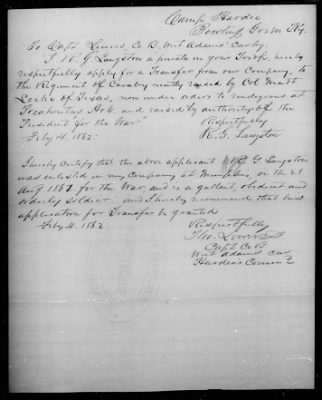 Camp Hardee
Bowling Green Ky.
To Capt. Lewis, Co B. Wirt Adams' Cavlry
I R. G. Langston a private in your Troop, hereby
respectfully apply for a Transfer from our Company, to
the Regiment of Cavalry newly raised by Col Matt
Locke of Texas, now under orders to rendezvous at
Pocahontas Ark and raised by authority of the
President for the War"
Respectfully
Feby 4. 1862.
R. G. Langston
I hereby certify that the above applicant R. G. Langston
was enlisted in my Company at Memphis, on the
Aug 1861 for the War, and is a gallant, obedient and
orderly soldier. and I hereby recommend that his
application for Transfer be granted
Respectfully
Feby 4. 1862.
Capt Co B
Wirt Adams Cav
Hardee's